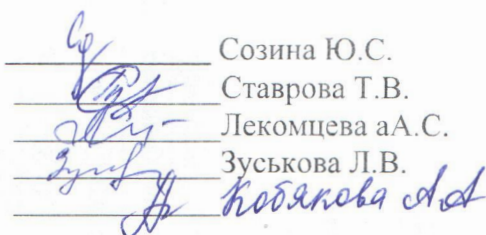 Созина Ю.С.
Ставрова Т.В.
Лекомцева аА.С.
Зуськова Л.В.
Кобякова А А